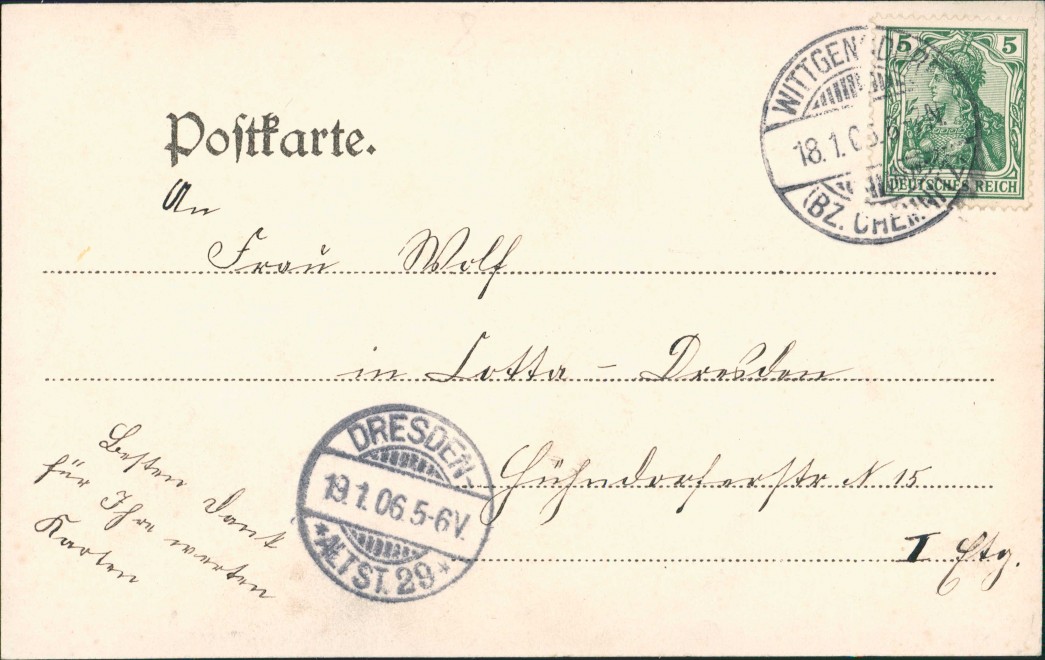 Postkarte.
WITTGENSDORF
18.1.06.
(BZ. CHEMN
5 5
DEUTSCHES REICH
An
Frau Wolf
in Cotta - Dresden
Hühndorferstr N 15
I Etg.
DRESDEN-
19.1.06.5-6V.
*ALTST. 29*
Besten Dank
für Ihre werten
Karten